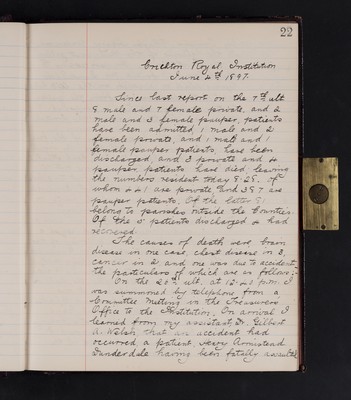 22
Crichton Royal Institution
June 4th 1897.
Since last report on the 7th ult
8 male and 7 female private, and 2
male and 3 female pauper, patients
have been admitted, 1 male and 2
female private, and 1 male and 1
female pauper patients have been
discharged, and 3 private and 4
pauper patients have died, leaving
the numbers resident May 828. Of
whom 441 are private, and 387 are
pauper patients. Of the latter 51
belong to parishes outside the Counties.
Of the 5 patients discharged 4 had
recovered.
The causes of death were, brain
disease in one case, chest disease in 3,
cancer in 2 and one was due to accident,
the particulars of which are as follows:-
On the 20th ult. at 12-45 p.m. I
was summoned by telephone from a
Committee Meeting in the Treasurers
Office to the Institution. On arrival I
learned from my assistant, Dr. Gilbert
A. Welsh that an accident had
occurred a patient, Henry Armistead
Dunderdale having been fatally